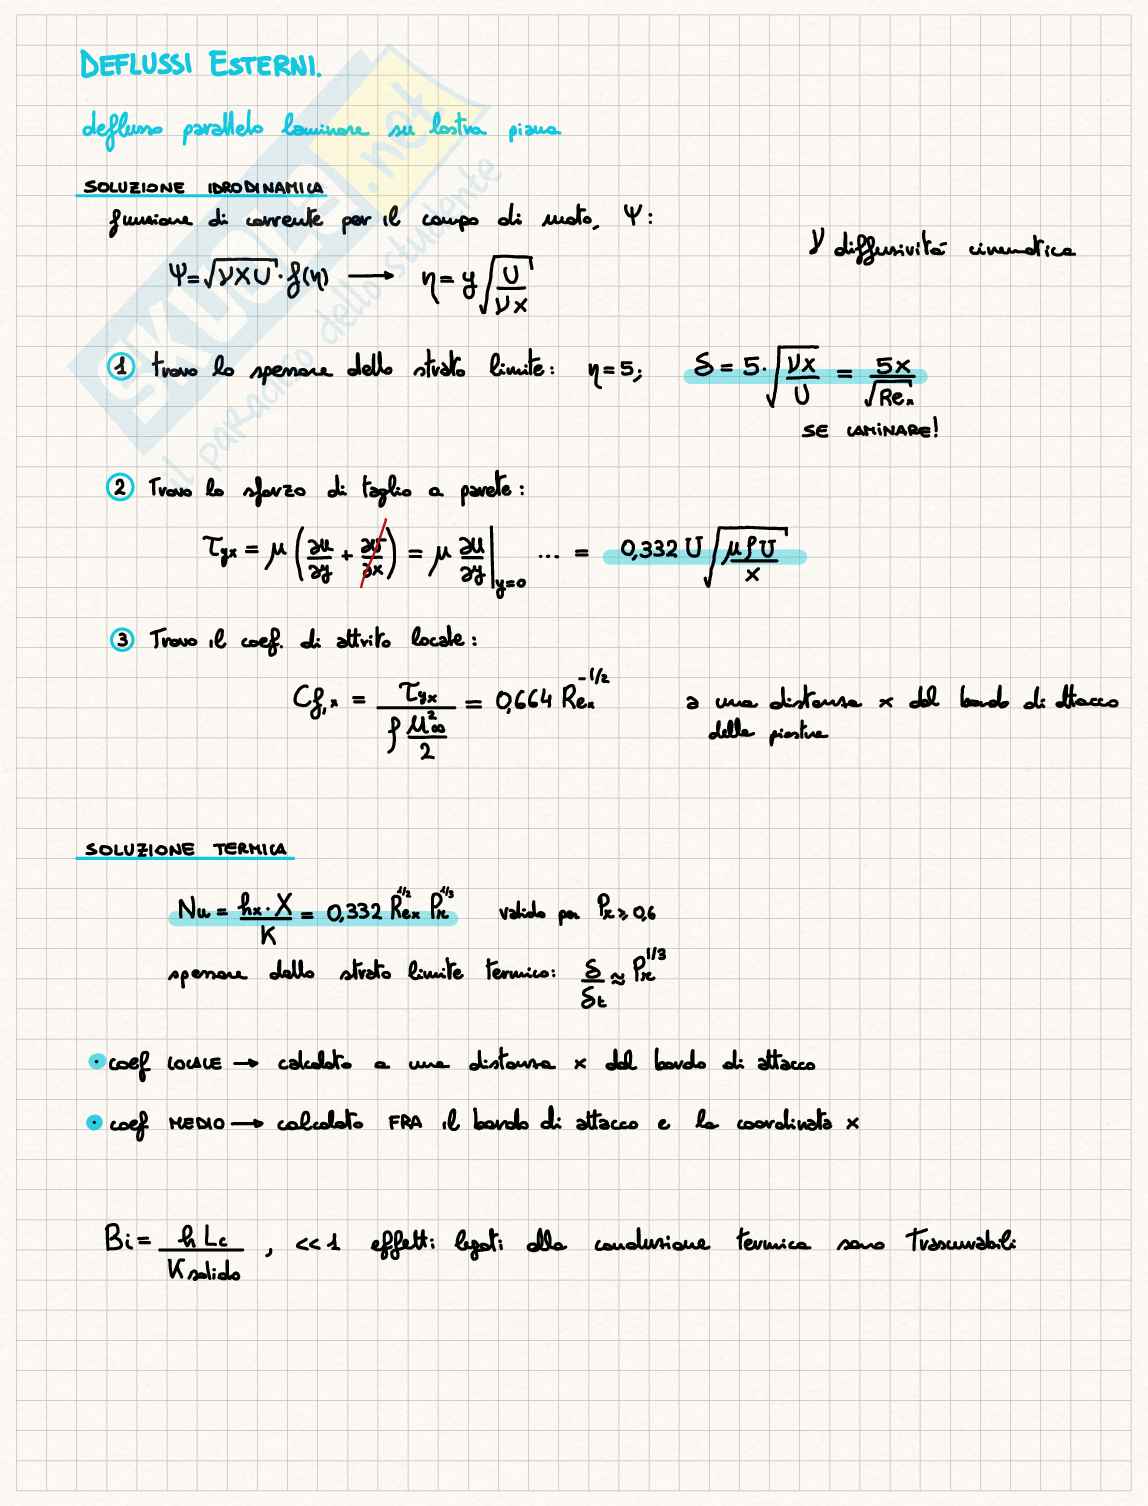 DEFLUSSI ESTERNI.
deflusso parallelo laminare su lastra piana
SOLUZIONE IDRODINAMICA
funzione di corrente per il campo di moto, Ψ:
ν diffusività cinematica
Ψ = √(νxU) · f(η) → η = y √(U/νx)
1 trovo lo spessore dello strato limite: η = 5; δ = 5 · √(νx/U) = 5x/√Reₓ
SE LAMINARE!
2 Trovo lo sforzo di taglio a parete:
τyx = μ (∂u/∂y + ∂v/∂x) = μ ∂u/∂y |y=0 ... = 0,332 U √(μρU/x)
3 Trovo il coef. di attrito locale:
Cf,x = τyx / (ρ u∞²/2) = 0,664 Reₓ^-1/2 a una distanza x dal bordo di attacco
della piastra
SOLUZIONE TERMICA
Nu = hx · X / K = 0,332 Rex^1/2 Pr^1/3 valido per Pr ≥ 0,6
spessore dello strato limite termico: δ/δt ≈ Pr^1/3
· coef LOCALE → calcolato a una distanza x dal bordo di attacco
· coef MEDIO → calcolato FRA il bordo di attacco e la coordinata x
Bi = h Lc / K solido , << 1 effetti legati alla conduzione termica sono Trascurabili
SKUOLA.net
il paradiso dello studente